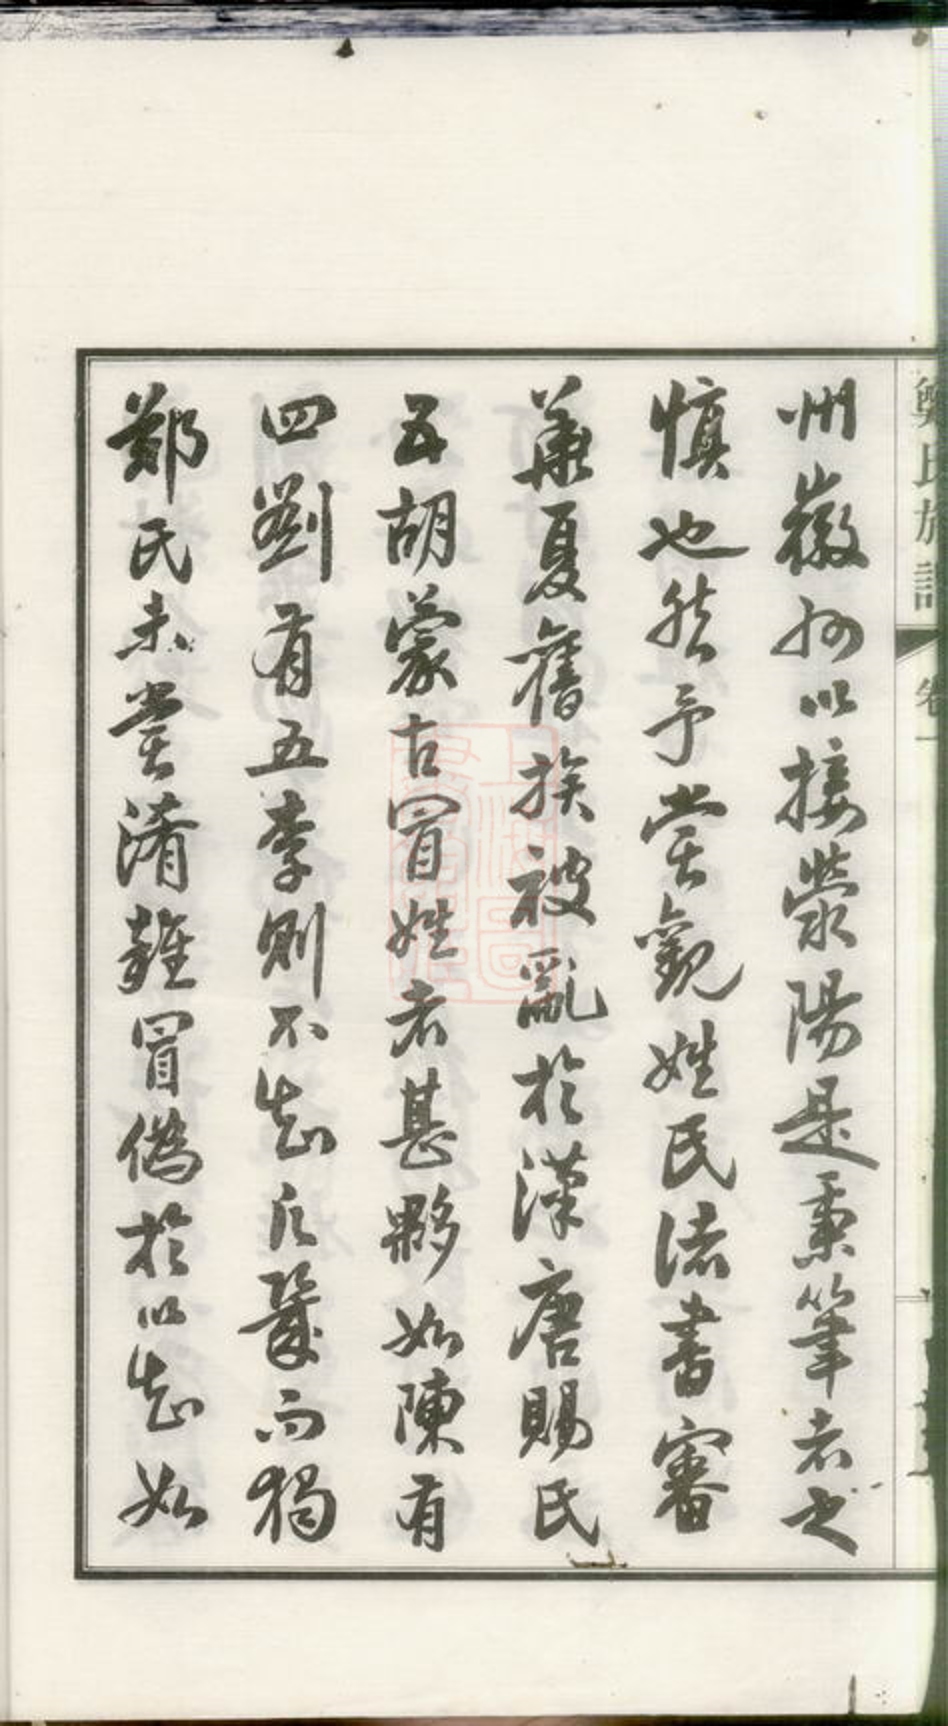 鄭氏族譜
卷一
州徽州以接滎陽是秉筆者之
慎也然予嘗觀姓民諸書審
華夏舊族被亂於漢唐賜氏
五胡蒙古冒姓者甚夥如陳有
四劉有五李則不知凡幾而獨
鄭氏未嘗淆雜冒偽於以知如